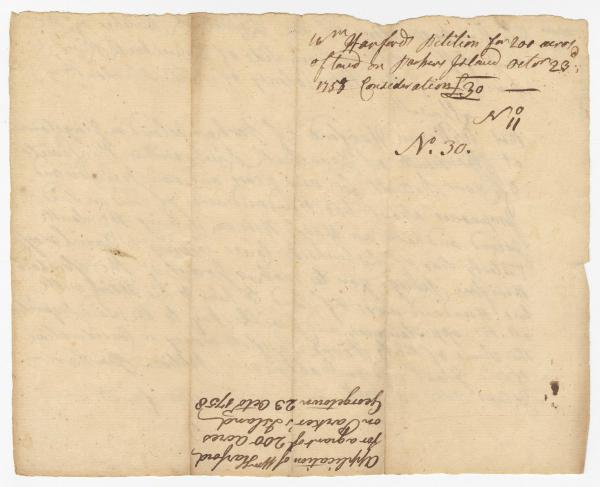 Wm Harfords Petition for 200 acres
of land on Parkers Island Octor 23d
1758 Consideration £30 —
No 11
No. 30.
Application of Wm Harford
for a grant of 200 Acres
on Parker's Island
Georgetown 23 Octo 1758